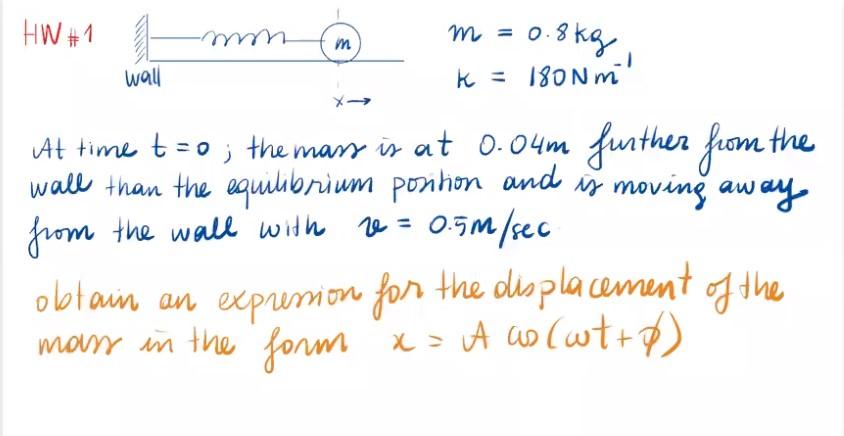 HW #1
m
m = 0.8kg
wall
k = 180Nm⁻¹
x→
At time t=0; the mass is at 0.04m further from the
wall than the equilibrium position and is moving away
from the wall with v = 0.5m/sec
obtain an expression for the displacement of the
mass in the form x = A cos(ωt+ϕ)